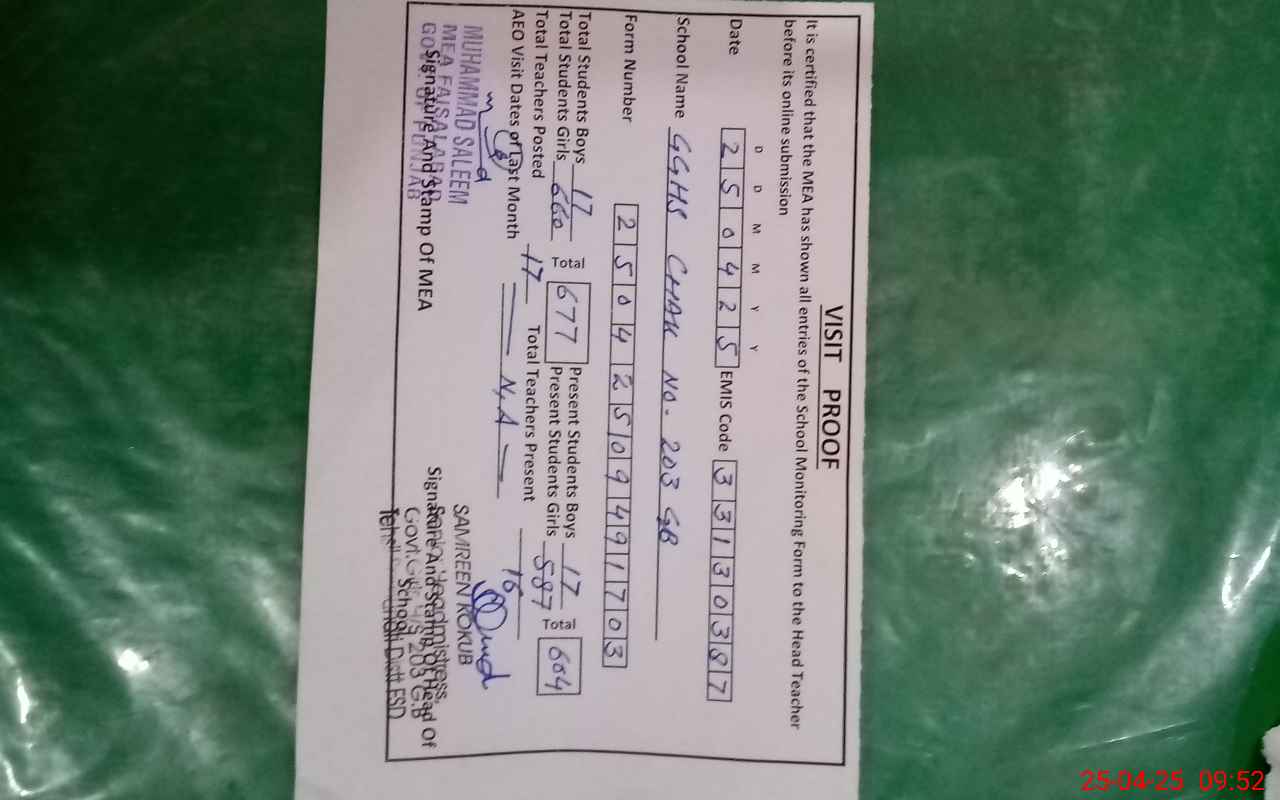 VISIT PROOF
It is certified that the MEA has shown all entries of the School Monitoring Form to the Head Teacher
before its online submission
D D M M Y Y
Date 2 5 0 4 2 5 EMIS Code 3 3 1 3 0 3 8 7
School Name GGHS CHAK NO. 203 GB
Form Number 2 5 0 4 2 5 0 9 4 9 1 7 0 3
Total Students Boys 17 Total 677 Present Students Boys 17 Total 604
Total Students Girls 660 Present Students Girls 587
Total Teachers Posted 17 Total Teachers Present 16
AEO Visit Dates of Last Month N.A
MUHAMMAD SALEEM
MEA FAISALABAD
GOVT. OF PUNJAB
Signature And Stamp Of MEA
SAMREEN KOKUB
Headmistress,
Signature And Stamp Of Head Of
School
203 G.B
Distt FSD
25-04-25 09:52